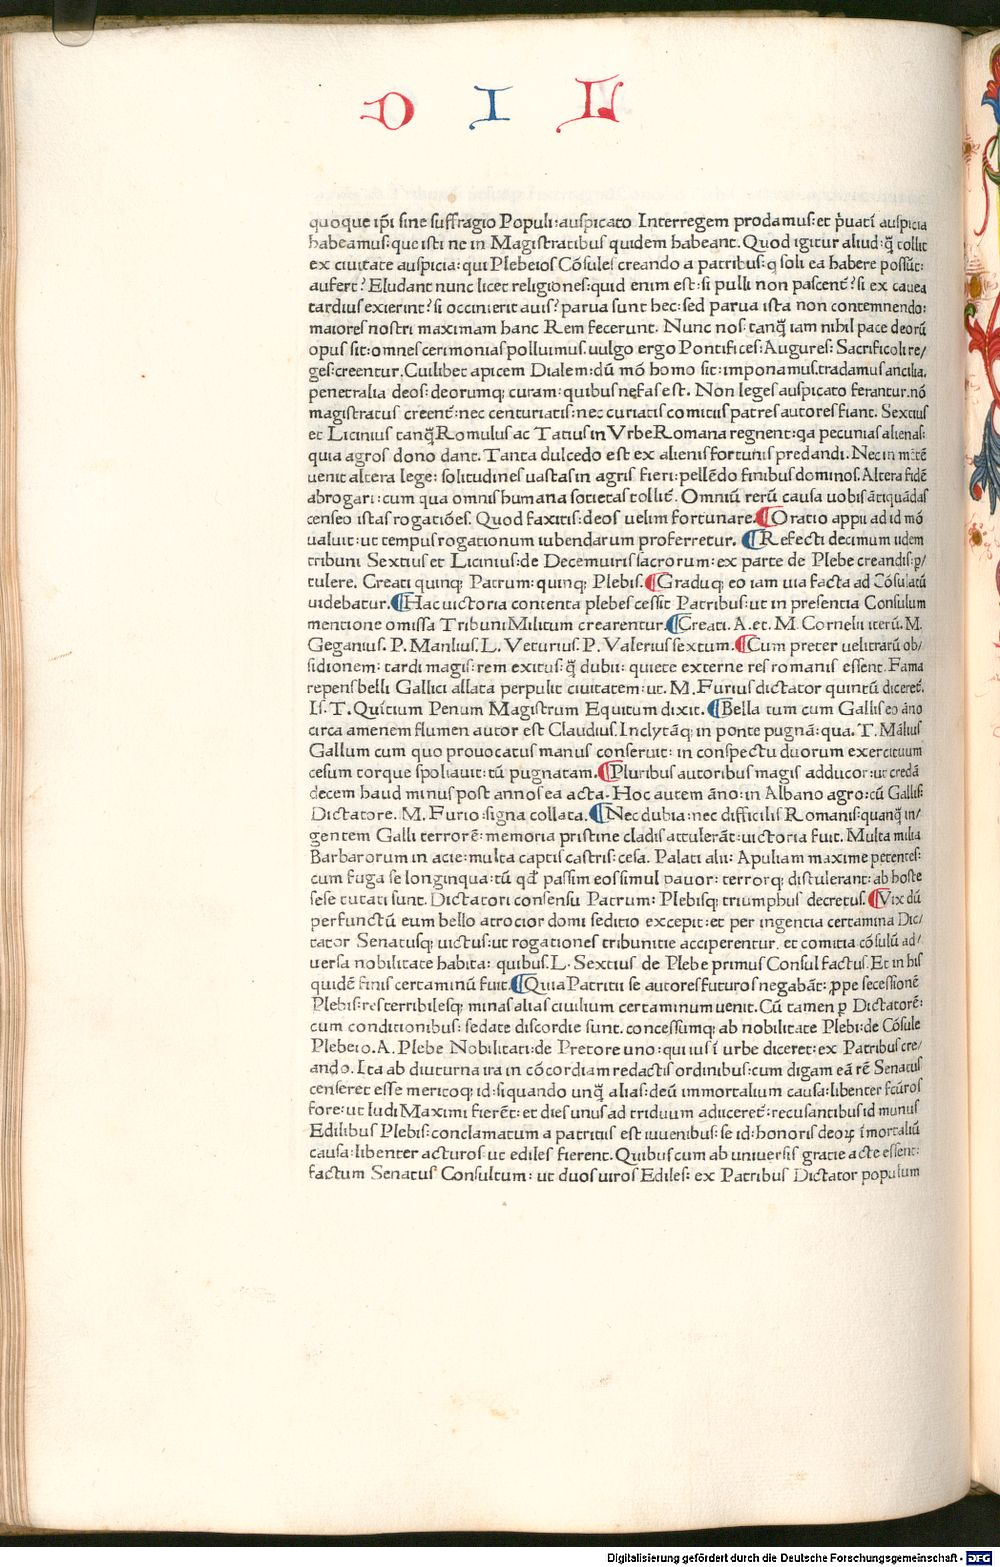 D I L
quoque ip̄i sine suffragio Populi:auspicato Interregem prodamus:et p̄uatī auspicia
habeamus:que isti ne in Magistratibus quidem habeant. Quod igitur aliud:q̄ tollit
ex ciuitate auspicia: qui Plebeios Cōsules creando a patribus:q soli ea habere possūt:
aufert? Eludant nunc licet religiones:quid enim est:si pulli non pascent̄?si ex cauea
tardius exierint?si occinierit auis?parua sunt hec:sed parua ista non contemnendo:
maiores nostri maximam hanc Rem fecerunt. Nunc nos:tanq̄ iam nihil pace deorū
opus sit:omnes cerimonias polluimus.uulgo ergo Pontifices:Augures: Sacrificoli re/
ges:creentur.Cuilibet apicem Dialem:dū mō homo sit:imponamus.tradamus ancilia.
penetralia deos:deorumq; curam:quibus nefas est. Non leges auspicato ferantur.nō
magistratus creent̄:nec centuriatis:nec curiatis comitiis patres autores fiant. Sextius
et Licinius tanq̄ Romulus ac Tatius in Vrbe Romana regnent:qa pecunias alienas:
quia agros dono dant. Tanta dulcedo est ex alienis fortunis predandi. Nec in mētē
uenit altera lege: solitudines uastas in agris fieri:pellēdo finibus dominos.Altera fidē
abrogari:cum qua omnis humana societas tollit̄. Omniū rerū causa uobis ātiquādas
censeo istas rogatiōes. Quod faxitis:deos uelim fortunare.¶Oratio appii ad id mō
ualuit:ut tempus rogationum iubendarum proferretur. ¶Refecti decimum iidem
tribuni Sextius et Licinius:de Decemuiris sacrorum:ex parte de Plebe creandis:p/
tulere. Creati quinq; Patrum:quinq; Plebis.¶Graduq; eo iam uia facta ad Cōsulatū
uidebatur.¶Hac uictoria contenta plebes cessit Patribus:ut in presentia Consulum
mentione omissa Tribuni Militum crearentur.¶Creati. A.et. M. Cornelii iterū. M.
Geganius. P. Manlius. L. Veturius. P. Valerius sextum.¶Cum preter uelitrarū ob/
sidionem: tardi magis:rem exitus:q̄ dubii:quiete externe res romanis essent. Fama
repens belli Gallici allata perpulit ciuitatem:ut. M. Furius dictator quintū diceret̄.
Is. T. Quītium Penum Magistrum Equitum dixit. ¶Bella tum cum Gallis eo āno
circa amenem flumen autor est Claudius. Inclytāq; in ponte pugnā:qua. T. Mālius
Gallum cum quo prouocatus manus conseruit: in conspectu duorum exercituum
cesum torque spoliauit:tū pugnatam.¶Pluribus autoribus magis adducor:ut credā
decem haud minus post annos ea acta. Hoc autem āno:in Albano agro:cū Gallis:
Dictatore. M. Furio:signa collata.¶Nec dubia:nec difficilis Romanis:quanq̄ in/
gentem Galli terrorē:memoria pristine cladis attulerāt:uictoria fuit. Multa milia
Barbarorum in acie:multa captis castris:cesa. Palati alii: Apuliam maxime petentes:
cum fuga se longinqua:tū qđ passim eos simul pauor: terrorq; distulerant:ab hoste
sese tutati sunt. Dictatori consensu Patrum: Plebisq; triumphus decretus.¶Vix dū
perfunctū eum bello atrocior domi seditio excepit:et per ingentia certamina Dic/
tator Senatusq; uictus:ut rogationes tribunitie acciperentur. et comitia cōsulū ad/
uersa nobilitate habita: quibus. L. Sextius de Plebe primus Consul factus. Et in his
quidē finis certaminū fuit.¶Quia Patritii se autores futuros negabāt: ꝓpe secessionē
Plebis:res terribilesq; minas alias ciuilium certaminum uenit. Cū tamen ꝑ Dictatorē:
cum conditionibus: sedate discordie sunt. concessumq; ab nobilitate Plebi:de Cōsule
Plebeio.A. Plebe Nobilitati:de Pretore uno:qui ius ī urbe diceret:ex Patribus cre/
ando. Ita ab diuturna ira in cōcordiam redactis ordinibus:cum digam eā rē Senatus
censeret esse meritoq; id:si quando unq̄ alias:deū immortalium causa:libenter fcūros
fore:ut ludi Maximi fierēt:et dies unus ad triduum adiiceret̄:recusantibus id munus
Edilibus Plebis:conclamatum a patritiis est iuuenibus:se id:honoris deoꝝ īmortaliū
causa:libenter acturos:ut ediles fierent. Quibus cum ab uniuersis gratie acte essent:
factum Senatus Consultum: ut duos uiros Ediles: ex Patribus Dictator populum
Digitalisierung gefördert durch die Deutsche Forschungsgemeinschaft - DFG